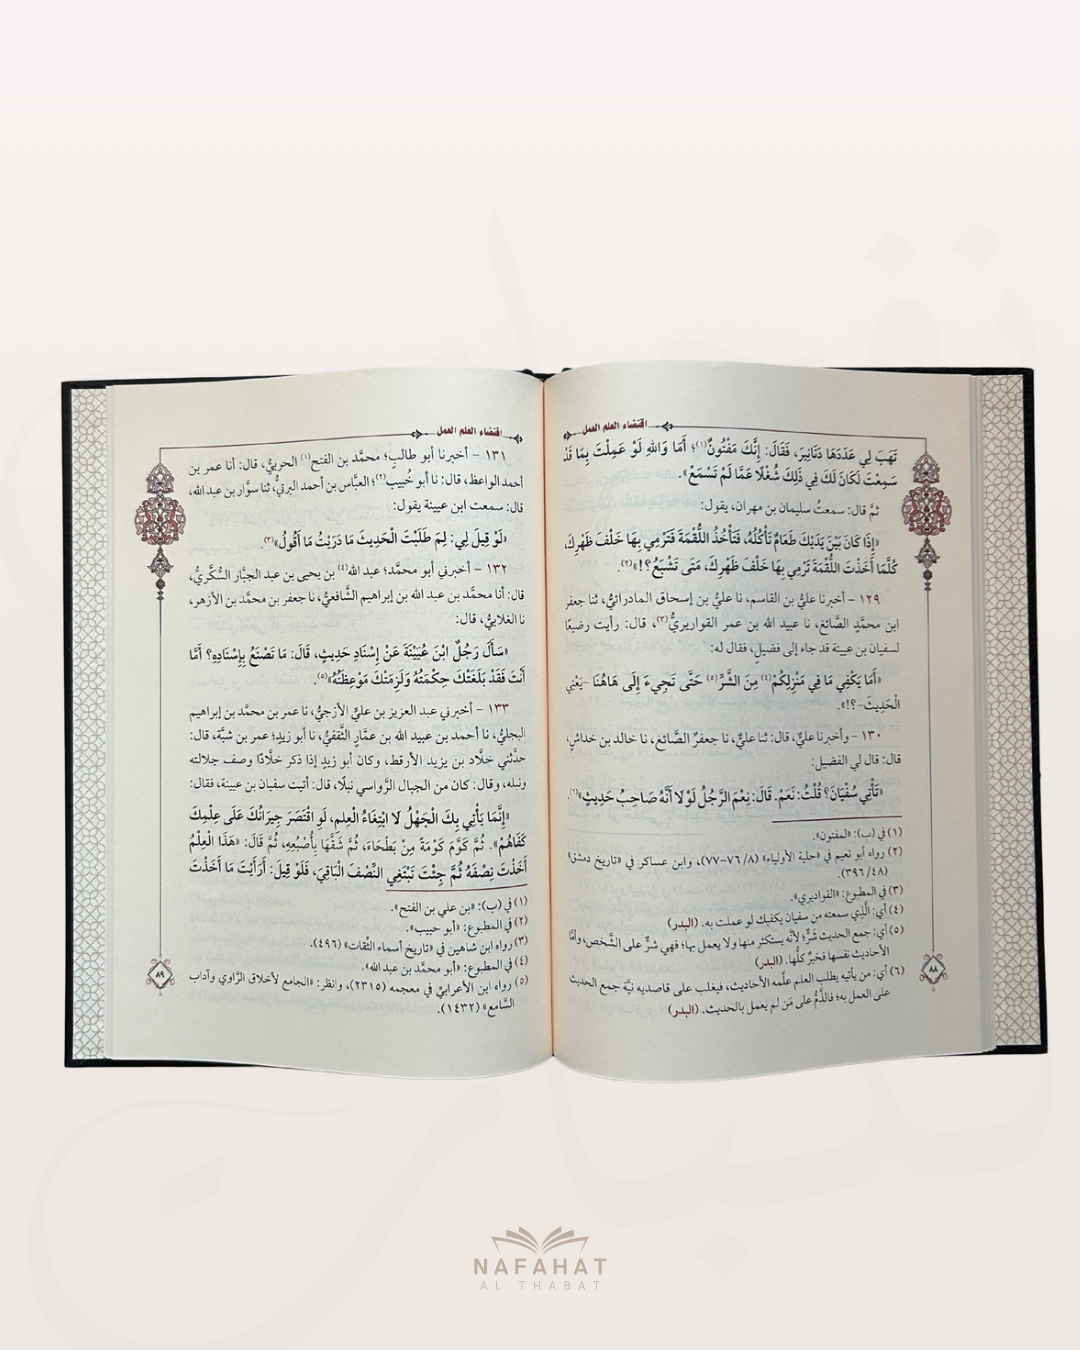 اقتضاء العلم العمل
تَهَبَ لِي عَدَدَهَا دَنَانِيرَ، فَقَالَ: إِنَّكَ مَفْتُونٌ(١)؛ أَمَا وَاللهِ لَوْ عَمِلْتَ بِمَا قَدْ
سَمِعْتَ لَكَانَ لَكَ فِي ذَلِكَ شُغْلًا عَمَّا لَمْ تَسْمَعْ».
ثمَّ قال: سمعتُ سليمان بن مهران، يقول:
«إِذَا كَانَ بَيْنَ يَدَيْكَ طَعَامٌ تَأْكُلُهُ، فَتَأْخُذُ اللُّقْمَةَ فَتَرْمِي بِهَا خَلْفَ ظَهْرِكَ،
كُلَّمَا أَخَذْتَ اللُّقْمَةَ تَرْمِي بِهَا خَلْفَ ظَهْرِكَ، مَتَى تَشْبَعُ؟!»(٢).
١٢٩ - أخبرنا عليُّ بن القاسم، نا عليُّ بن إسحاق المادرائيُّ، ثنا جعفر
ابن محمَّدٍ الصَّائغ، نا عبيد الله بن عمر القواريريُّ(٣)، قال: رأيت رضيعًا
لسفيان بن عيينة قد جاء إلى فضيل، فقال له:
«أَمَا يَكْفِي مَا فِي مَنْزِلِكُمْ(٤) مِنَ الشَّرِّ(٥) حَتَّى تَجِيءَ إِلَى هَاهُنَا -يَعْنِي
الْحَدِيثَ-؟!».
١٣٠ - وأخبرنا عليٌّ، قال: ثنا عليٌّ، نا جعفرٌ الصَّائغ، نا خالد بن خداش،
قال: قال لي الفضيل:
«تَأْتِي سُفْيَانَ؟ قُلْتُ: نَعَمْ. قَالَ: نِعْمَ الرَّجُلُ لَوْلَا أَنَّهُ صَاحِبُ حَدِيثٍ»(٦).
(١) في (ب): «لمفتون».
(٢) رواه أبو نعيم في «حلية الأولياء» (٨/ ٧٦-٧٧)، وابن عساكر في «تاريخ دمشق»
(٤٨/ ٣٩٦).
(٣) في المطبوع: «القواديري».
(٤) أي: الَّذي سمعته من سفيان يكفيك لو عملت به. (البدر)
(٥) أي: جمع الحديث شرٌّ؛ لأنَّه يستكثر منها ولا يعمل بها؛ فهي شرٌّ على الشَّخص، وأمَّا
الأحاديث نفسها فخيرٌ كلُّها. (البدر)
(٦) أي: من يأتيه يطلب العلم علَّمه الأحاديث، فيغلب على قاصديه نيَّة جمع الحديث
على العمل به؛ فالذَّمُّ على مَن لم يعمل بالحديث. (البدر)
٨٨
اقتضاء العلم العمل
١٣١ - أخبرنا أبو طالبٍ؛ محمَّد بن الفتح(١) الحربيُّ، قال: أنا عمر بن
أحمد الواعظ، قال: نا أبو خُبيبٍ(٢)؛ العبَّاس بن أحمد البرتيُّ، ثنا سوَّار بن عبد الله،
قال: سمعت ابن عيينة يقول:
«لَوْ قِيلَ لِي: لِمَ طَلَبْتَ الْحَدِيثَ مَا دَرَيْتُ مَا أَقُولُ»(٣).
١٣٢ - أخبرني أبو محمَّد؛ عبد الله(٤) بن يحيى بن عبد الجبَّار السُّكَّريُّ،
قال: أنا محمَّد بن عبد الله بن إبراهيم الشَّافعيُّ، نا جعفر بن محمَّد بن الأزهر،
نا الغلابيُّ، قال:
«سَأَلَ رَجُلٌ ابْنَ عُيَيْنَةَ عَنْ إِسْنَادِ حَدِيثٍ، قَالَ: مَا تَصْنَعُ بِإِسْنَادِهِ؟ أَمَّا
أَنْتَ فَقَدْ بَلَغَتْكَ حِكْمَتُهُ وَلَزِمَتْكَ مَوْعِظَتُهُ»(٥).
١٣٣ - أخبرني عبد العزيز بن عليٍّ الأزجيُّ، نا عمر بن محمَّد بن إبراهيم
البجليُّ، نا أحمد بن عبيد الله بن عمَّارٍ الثَّقفيُّ، نا أبو زيدٍ؛ عمر بن شبَّة، قال:
حدَّثني خلَّاد بن يزيد الأرقط، وكان أبو زيدٍ إذا ذكر خلَّادًا وصف جلالته
ونبله، وقال: كان من الجبال الرَّواسي نبلًا، قال: أتيت سفيان بن عيينة، فقال:
«إِنَّمَا يَأْتِي بِكَ الْجَهْلُ لَا ابْتِغَاءُ الْعِلْمِ، لَوِ اقْتَصَرَ جِيرَانُكَ عَلَى عِلْمِكَ
كَفَاهُمْ». ثُمَّ كَوَّمَ كَوْمَةً مِنْ بَطْحَاءَ، ثُمَّ شَقَّهَا بِأُصْبُعِهِ، ثُمَّ قَالَ: «هَذَا الْعِلْمُ
أَخَذْتَ نِصْفَهُ ثُمَّ جِئْتَ تَبْتَغِي النِّصْفَ الْبَاقِيَ، فَلَوْ قِيلَ: أَرَأَيْتَ مَا أَخَذْتَ
(١) في (ب): «بن علي بن الفتح».
(٢) في المطبوع: «أبو حبيب».
(٣) رواه ابن شاهين في «تاريخ أسماء الثِّقات» (٤٩٦).
(٤) في المطبوع: «أبو محمَّد بن عبد الله».
(٥) رواه ابن الأعرابيِّ في معجمه (٢٣١٥)، وانظر: «الجامع لأخلاق الرَّاوي وآداب
السَّامع» (١٤٣٢).
٨٩
NAFAHAT
AL THABAT